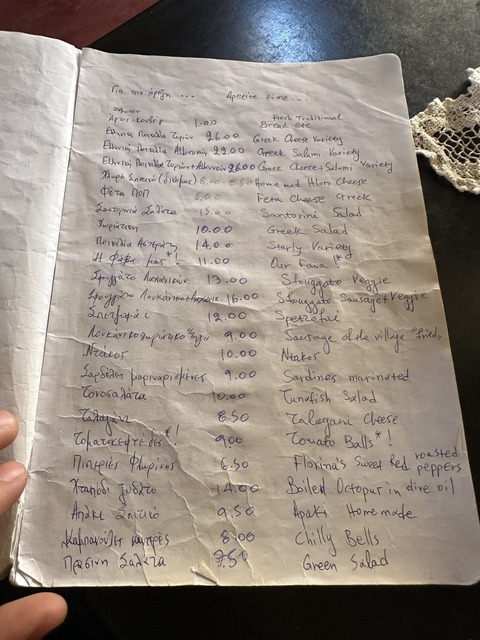 Για την όρεξη.... Apetite time...
ζυμωτό Fresh Traditional
Άρτος-κουβέρ 1.00 Bread etc
Ελληνική Ποικιλία Τυριών 26.00 Greek Cheese Variety
Ελληνική Ποικιλία Αλλαντικών 29.00 Greek Salami Variety
Ελληνική Ποικιλία Τυριών+Αλλαντικών 26.00 Greek Cheese+Salami Variety
Χλωρό Σπιτικό 8.00 Home mad Hloro Cheese
Φέτα ΠΟΠ 6.00 Feta Cheese Greek
Σαντορινιά Σαλάτα 15.00 Santorini Salad
Χωριάτικη 10.00 Greek Salad
Ποικιλία Αστεράτη 14.00 Starly Variety
Η φάβα μας*! 11.00 Our Fava!*
Σφουγγάτο Λαχανικών 13.00 Sfouggato Veggie
Σφουγγάτο Λουκάνικο+Λαχανικ. 16.00 Sfouggato Sausage+Veggie
Σπετζοφάι 12.00 Spetzofai
Λουκάνικο χωριάτικο 9.00 Sausage of the village "fried"
Ντακος 10.00 Ntakos
Σαρδέλες μαριναρισμένες 9.00 Sardines marinated
Τονοσαλάτα 10.00 Tunafish Salad
Ταλαγάνι 8.50 Talagani Cheese
Τοματοκεφτέδες*! 9.00 Tomato Balls*!
Πιπεριές Φλωρίνης 6.50 Florina's Sweet Red roasted peppers
Χταπόδι ξυδάτο 14.00 Boiled Octopus in olive oil
Απάκι Σπιτικό 9.50 Apaki Homemade
Καμπανούλες καυτερές 8.00 Chilly Bells
Πράσινη Σαλάτα 7.50 Green Salad